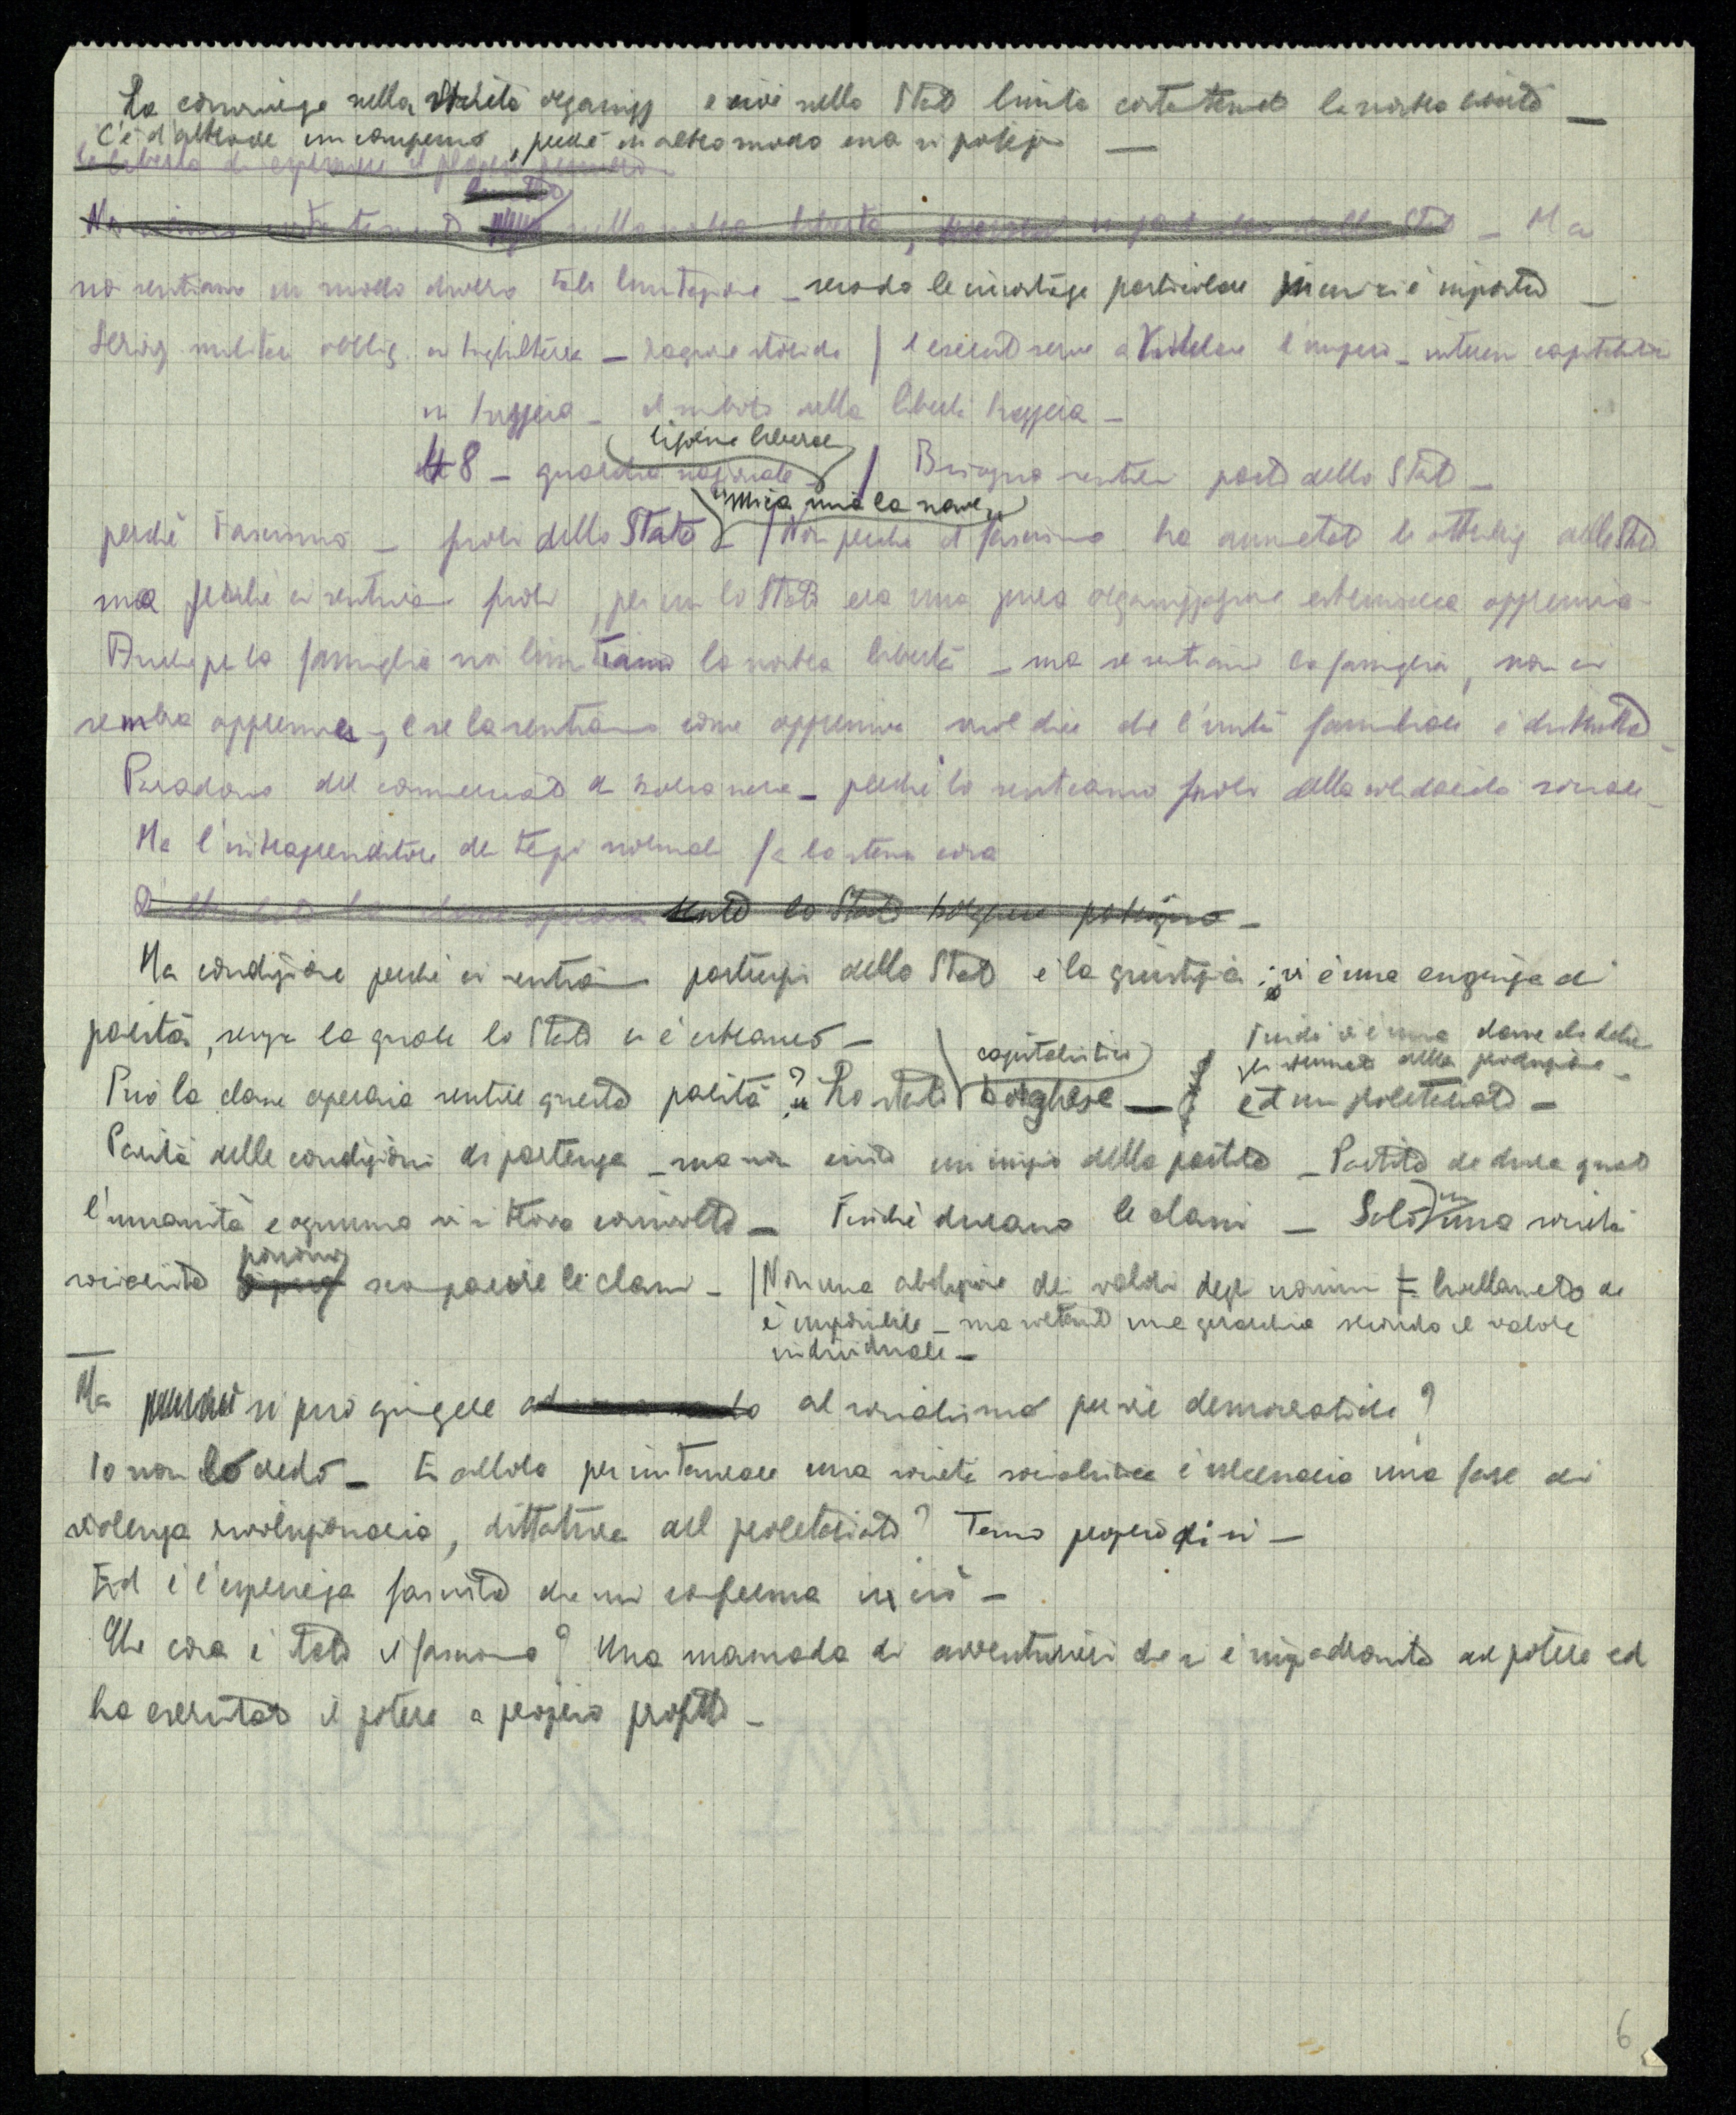 La convivenza nella società organizz e cioè nello Stato limita certamente la nostra libertà —
C'è d'altronde un compenso, perché in altro modo essa si potenzia —
la libertà di esprimere il proprio pensiero
nella nostra libertà, Stato — Ma
noi sentiamo in modo diverso tale limitazione — secondo le circostanze particolari in cui ci è imposta —
Serviz. militare obblig. in Inghilterra — ragione storica / l'esercito serve a l'impero — interessi capitalistici
in Svizzera — il simbolo della libertà svizzera —
legione liberale
48 — guardia nazionale / Bisogna sentirsi parte dello Stato —
perché Fascismo — fuori dello Stato — / Non perché il fascismo ha aumentato le attribuz dello Stato
ma perché ci sentivamo fuori, per cui lo Stato era una pura organizzazione estrinseca oppressiva
Anche per la famiglia noi limitiamo la nostra libertà — ma se sentiamo la famiglia, non ci
sembra oppressiva, e se la sentiamo come oppressiva vuol dire che l'unità familiare è distrutta —
Paradosso del commerciante di borsa nera — perché lo sentiamo fuori della solidarietà sociale —
Ma l'intraprenditore dei tempi normali fa la stessa cosa
sente lo Stato borghese —
Ma condizione perché ci sentiamo partecipi dello Stato è la giustizia; vi è una esigenza di
parità, senza la quale lo Stato ci è estraneo —
Finché vi è una classe che detiene
gli strumenti della produzione —
capitalistico
Può la classe operaia sentire questa parità? Lo stato borghese — ed un proletariato —
Parità delle condizioni di partenza — ma non esiste un inizio della partita — Partita che dura quanto
l'umanità e ognuno vi si trova coinvolto — Finché durano le classi — Solo in una società
possono
socialista scomparire le classi — / Non una abolizione dei valori degli uomini = livellamento che
è impossibile — ma soltanto una gerarchia secondo il valore
individuale —
Ma si può giungere al socialismo per vie democratiche?
Io non lo credo — E allora per instaurare una società socialista è necessaria una fase di
violenza rivoluzionaria, dittatura del proletariato? Temo proprio di sì —
Ed è l'esperienza fascista che mi conferma in ciò —
Che cosa è stato il fascismo? Una masnada di avventurieri che si è impadronita del potere ed
ha esercitato il potere a proprio profitto —
6